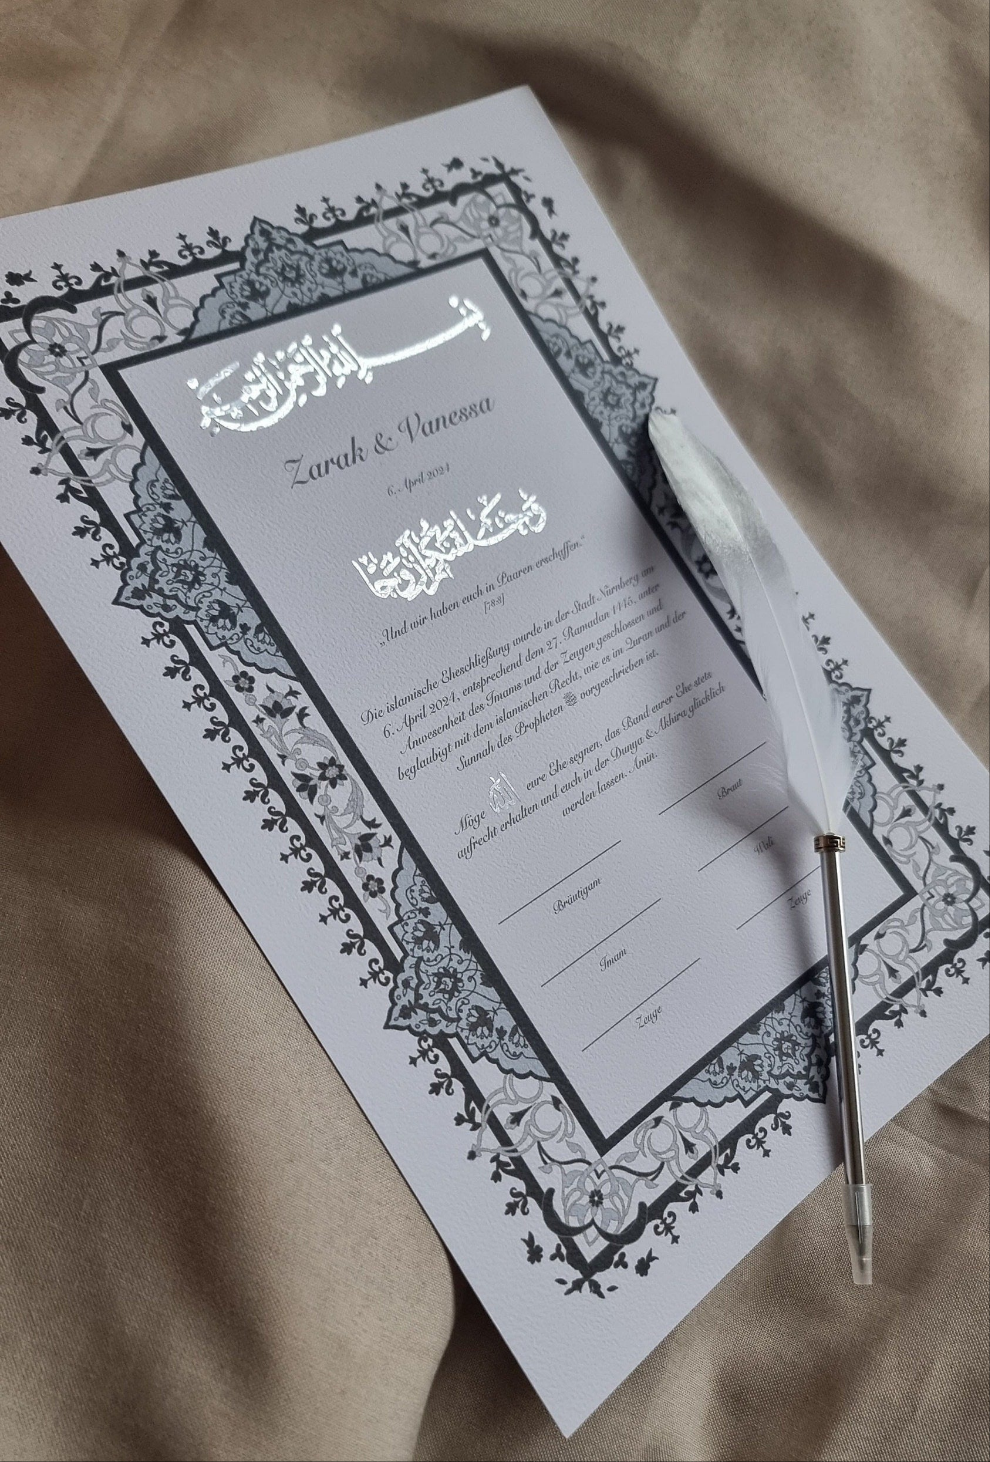 بسم الله الرحمن الرحيم
Zarak & Vanessa
6. April 2024
وخلقنكم أزوجا
„Und wir haben euch in Paaren erschaffen.“
[78:8]
Die islamische Eheschließung wurde in der Stadt Nürnberg am
6. April 2024, entsprechend dem 27. Ramadan 1445, unter
Anwesenheit des Imams und der Zeugen geschlossen und
beglaubigt mit dem islamischen Recht, wie es im Quran und der
Sunnah des Propheten ﷺ vorgeschrieben ist.
Möge الله eure Ehe segnen, das Band eurer Ehe stets
aufrecht erhalten und euch in der Dunya & Akhira glücklich
werden lassen. Amin.
Bräutigam Braut
Imam Wali
Zeuge Zeuge